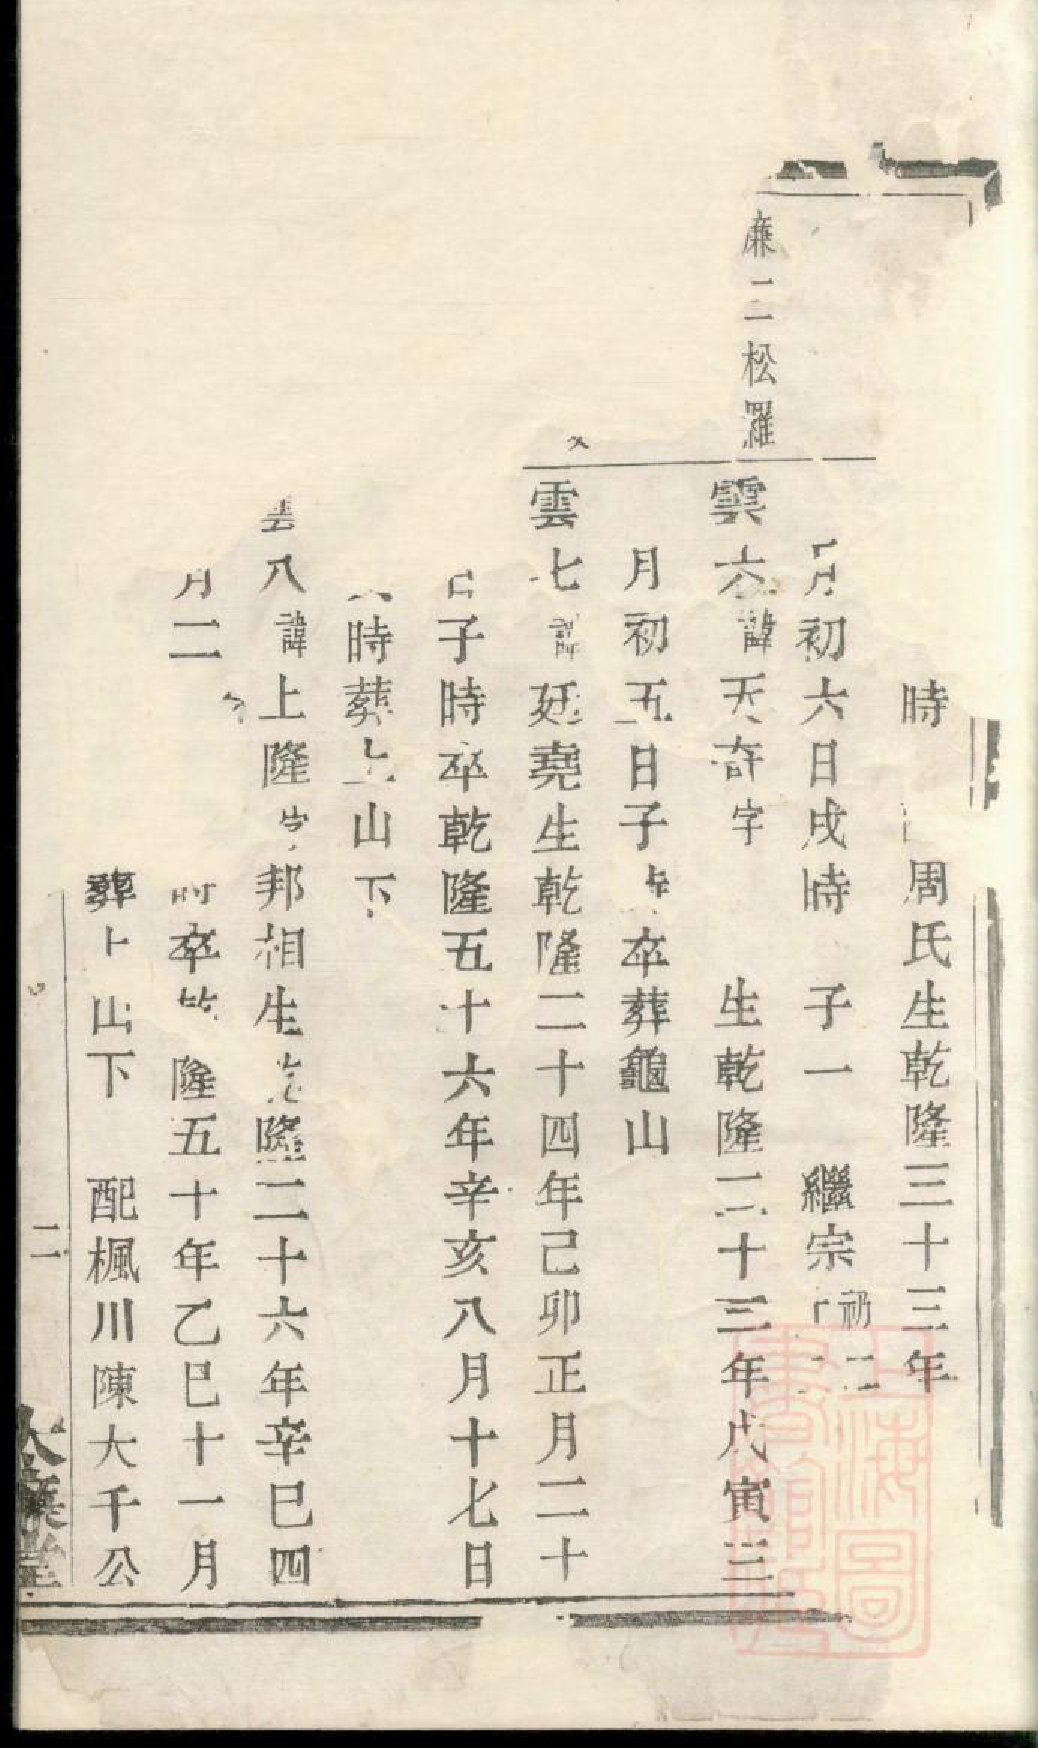 時 周氏生乾隆三十三年
月初六日戌時 子一 繼宗 初二
廉二松羅
雲六諱天奇字 生乾隆二十三年戊寅三
月初五日子 卒葬龜山
雲七諱廷堯生乾隆二十四年己卯正月二十
日子時卒乾隆五十六年辛亥八月十七日
時葬上山下
雲八諱上隆字邦相生乾隆二十六年辛巳四
月二 時卒 隆五十年乙巳十一月
葬上山下 配楓川陳大千公
二
堂
上海圖書館藏